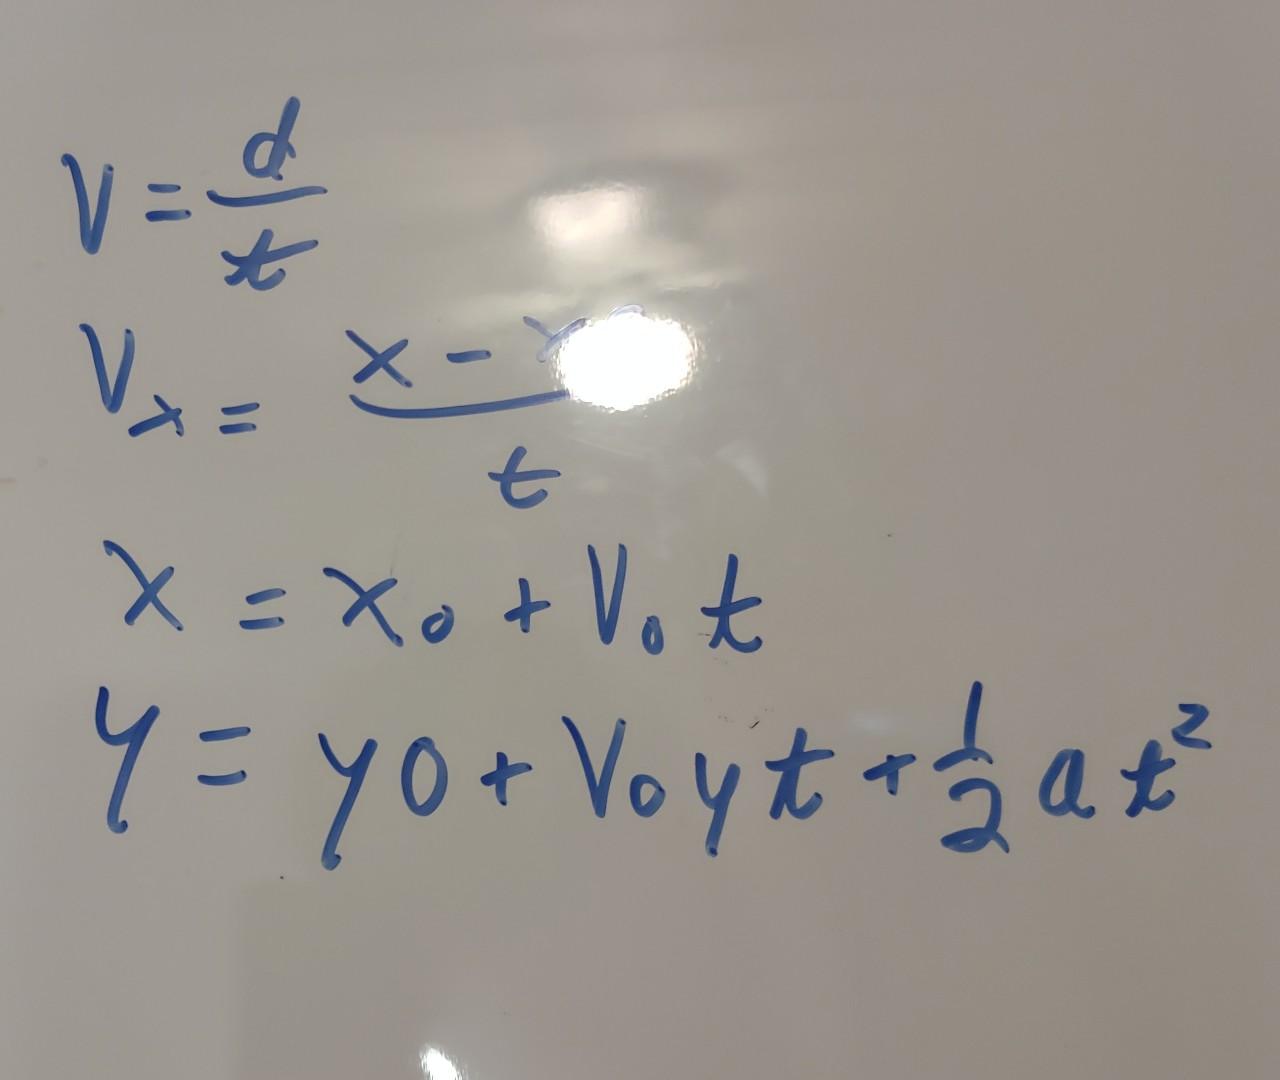 V = d/t
Vx = x - 
t
x = x₀ + V₀ t
y = y0 + V₀y t + 1/2 a t²